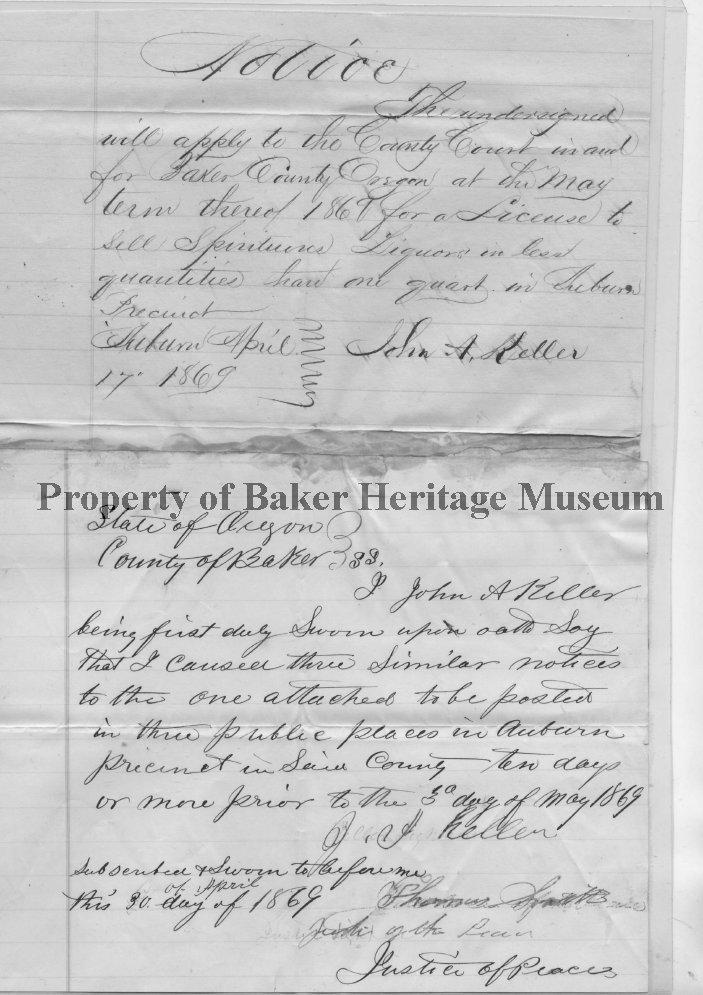 Notice
The undersigned
will apply to the County Court in and
for Baker County Oregon at the May
term thereof 1869 for a License to
sell Spirituous Liquors in less
quantities than one quart in Auburn
Precinct
Auburn April
17" 1869
John A. Keller
Property of Baker Heritage Museum
State of Oregon
County of Baker } SS.
I John A Keller
being first duly Sworn upon oath Say
that I caused three Similar notices
to the one attached to be posted
in three public places in Auburn
precinct in Said County ten days
or more prior to the 3d day of May 1869
J. A Keller
Subscribed & Sworn to before me
this 30 day of April of 1869
Thomas
Justice of Peace